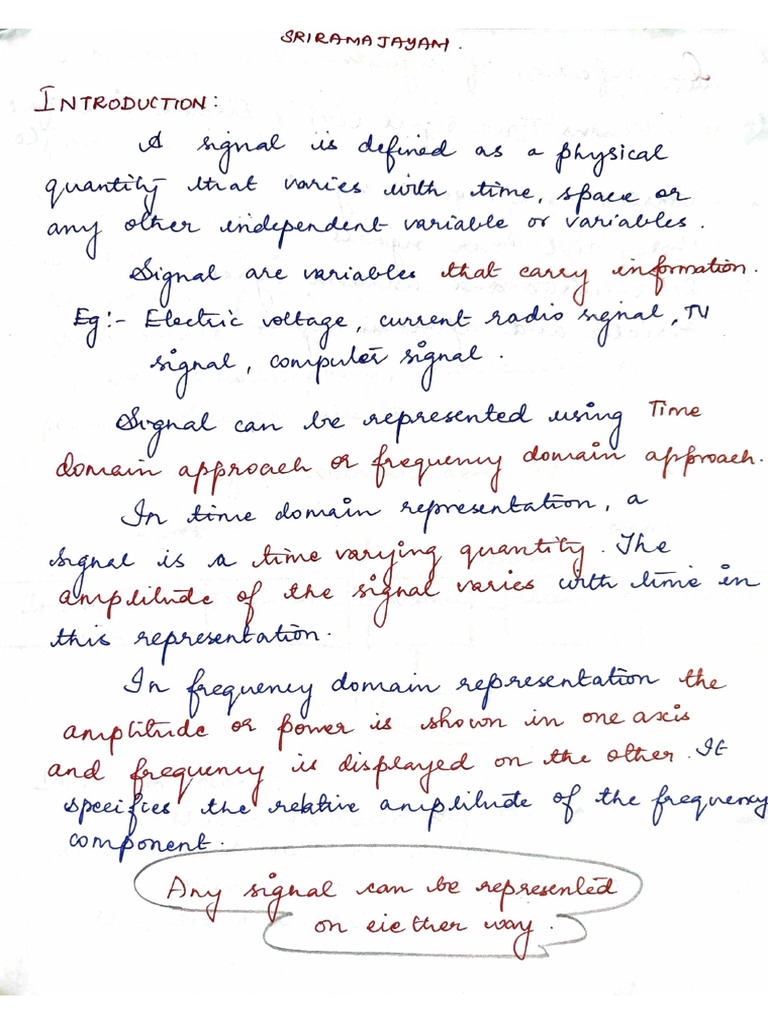 SRIRAMAJAYAM.
INTRODUCTION:
A signal is defined as a physical
quantity that varies with time, space or
any other independent variable or variables.
Signal are variables that carry information.
Eg:- Electric voltage, current radio signal, TV
signal, computer signal.
Signal can be represented using Time
domain approach or frequency domain approach.
In time domain representation, a
signal is a time varying quantity. The
amplitude of the signal varies with time in
this representation.
In frequency domain representation the
amplitude or power is shown in one axis
and frequency is displayed on the other. It
specifies the relative amplitude of the frequency
component.
Any signal can be represented
on eiether way.